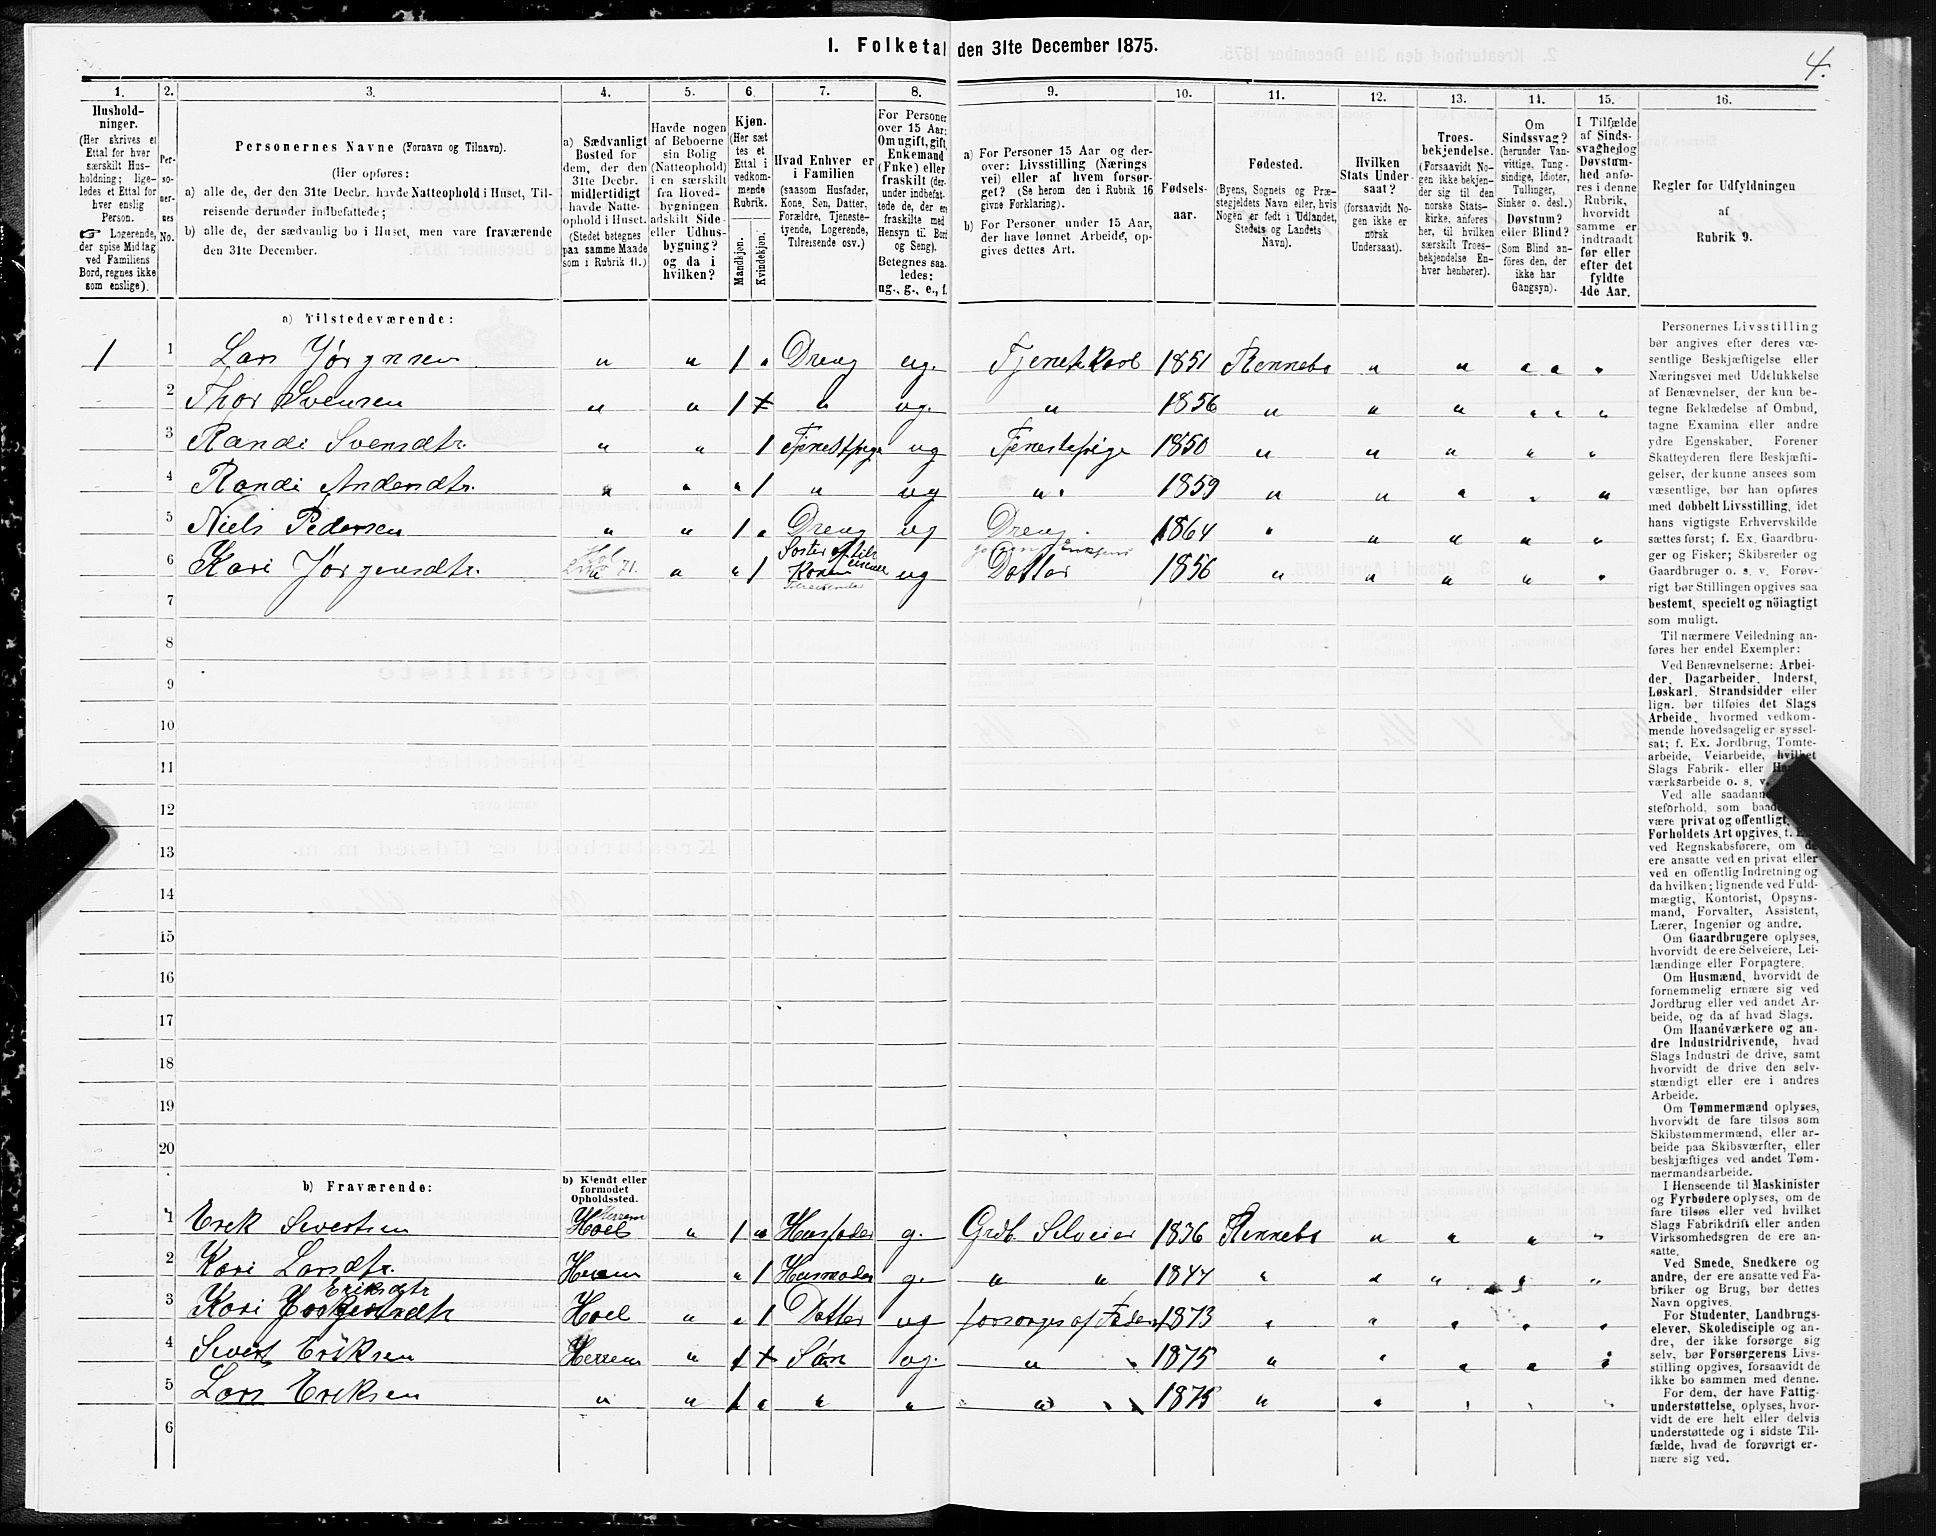 1. Folketal den 31te December 1875.
4.
1.
2.
3.
4.
5.
6.
7.
8.
9.
10.
11.
12.
13.
14.
15.
16.
Hushold-
ninger.
(Her skrives et
Ettal for hver
særskilt Hus-
holdning; lige-
ledes et Ettal for
hver enslig
Person.
☞ Logerende,
der spise Middag
ved Familiens
Bord, regnes ikke
som enslige).
Per-
so-
ner-
nes
No.
Personernes Navne (Fornavn og Tilnavn).
(Her opføres:
a) alle de, der den 31te Decbr. havde Natteophold i Huset, Til-
reisende derunder indbefattede;
b) alle de, der sædvanlig bo i Huset, men vare fraværende
den 31te December.
a) Sædvanligt
Bosted for
dem, der den
31te Decbr.
midlertidigt
havde Natte-
ophold i Huset.
(Stedet betegnes
paa samme Maade
som i Rubrik 11.)
Havde nogen
af Beboerne
sin Bolig
(Natteophold)
i en særskilt
fra Hoved-
bygningen
adskilt Side-
eller Udhus-
bygning?
og da i
hvilken?
Kjøn.
(Her sæt-
tes et
Ettal i
vedkom-
mende
Rubrik.
Mandkjøn.
Kvindekjøn.
Hvad Enhver er
i Familien
(saasom Husfader,
Kone, Søn, Datter,
Forældre, Tjeneste-
tyende, Logerende,
Tilreisende osv.)
For Personer
over 15 Aar:
Om ugift, gift,
Enkemand
(Enke) eller
fraskilt (der-
under indbefat-
tede de, der ere
fraskilte med
Hensyn til Bord
og Seng).
Betegnes saa-
ledes:
ug., g., e., f.
a) For Personer 15 Aar og der-
over: Livsstilling (Nærings-
vei) eller af hvem forsør-
get? (Se herom den i Rubrik 16
givne Forklaring).
b) For Personer under 15 Aar,
der have lønnet Arbeide, op-
gives dettes Art.
Fødsels-
aar.
Fødested.
(Byens, Sognets og Præ-
stegjeldets Navn eller, hvis
Nogen er født i Udlandet,
Stedets og Landets
Navn).
Hvilken
Stats Under-
saat?
(forsaavidt No-
gen ikke er
norsk
Undersaat).
Troes-
bekjendelse.
(Forsaavidt No-
gen ikke bekjen-
der sig til den
norske Stats-
kirke, anføres
her, til hvilken
særskilt Troes-
bekjendelse En-
hver henhører).
Om
Sindssvag?
(herunder Van-
vittige, Tung-
sindige, Idioter,
Tullinger,
Sinker o. desl.)
Døvstum?
eller Blind?
(Som Blind an-
føres den, der
ikke har
Gangsyn).
I Tilfælde
af Sinds-
svaghed og
Døvstum-
hed anfø-
res i denne
Rubrik,
hvorvidt
samme er
indtraadt
før eller
efter det
fyldte
4de Aar.
Regler for Udfyldningen
af
Rubrik 9.
a) Tilstedeværende:
1 1 Lars Jørgnsen " " 1 " Dreng ug. Tjenestekarl 1851 Rennebo " " " " "
2 Thor Svensen " " 1 " ug. " 1856 " " " " " "
3 Randi Svensdtr. " " 1 Tjenestpige ug Tjenestepige 1850 " " " " "
4 Randi Andersdtr. " " " 1 " ug " 1859 " " " " "
5 Niels Pedersen " " 1 " Dreng ug Dreng 1864 " " " " "
6 Kari Jørgensdtr. " " 1 Søster af Konen Tilreisende ug Datter 1856 " " " " "
7
8
9
10
11
12
13
14
15
16
17
18
19
20
b) Fraværende:
b) Kjendt eller
formodet
Opholdssted.
1 Erek Sivertsen Hoel Herrem " 1 " Husfader g. Grdb. Selveier 1836 Rennebo " " " "
2 Kari Larsdtr. Herrem " 1 Husmoder g. " " 1847 " " " " "
3 Kari Eriksdtr Hoel " " 1 Datter ug forsørges af Faderen 1873 " " " " "
4 Sivert Eriksen Herrem " 1 Søn ug. " 1875 " " " " "
5 Lars Eriksen " " 1 " " " " 1875 " " " " "
6
Personernes Livsstilling
bør angives efter deres væ-
sentlige Beskjæftigelse eller
Næringsvei med Udelukkelse
af Benævnelser, der kun be-
tegne Beklædelse af Ombud,
tagne Examina eller andre
ydre Egenskaber. Forener
Skatteyderen flere Beskjæfti-
gelser, der kunne ansees som
væsentlige, bør han opføres
med dobbelt Livsstilling, idet
hans vigtigste Erhvervskilde
sættes først; f. Ex. Gaardbru-
ger og Fisker; Skibsreder og
Gaardbruger o. s. v. Forøv-
rigt bør Stillingen opgives saa
bestemt, specielt og nöiagtigt
som muligt.
Til nærmere Veiledning an-
føres her endel Exempler:
Ved Benævnelserne: Arbei-
der, Dagarbeider, Inderst,
Løskarl, Strandsidder eller
lign. bør tilføies det Slags
Arbeide, hvormed vedkom-
mende hovedsagelig er syssel-
sat; f. Ex. Jordbrug, Tomte-
arbeide, Veiarbeide, hvilket
Slags Fabrik- eller
værksarbeide o. s. v.
Ved alle saadanne
steforhold, som baade
være privat og offentligt,
Forholdets Art opgives, t. Ex.
ved Regnskabsførere, om de
ere ansatte ved en privat eller
ved en offentlig Indretning og
da hvilken; lignende ved Fuld-
mægtig, Kontorist, Opsyns-
mand, Forvalter, Assistent,
Lærer, Ingeniør og andre.
Om Gaardbrugere oplyses,
hvorvidt de ere Selveiere, Lei-
lændinge eller Forpagtere.
Om Husmænd, hvorvidt de
fornemmelig ernære sig ved
Jordbrug eller ved andet Ar-
beide, og da af hvad Slags.
Om Haandværkere og an-
dre Industridrivende, hvad
Slags Industri de drive, samt
hvorvidt de drive den selv-
stændigt eller ere i andres
Arbeide.
Om Tømmermænd oplyses,
hvorvidt de fare tilsøs som
Skibstømmermænd, eller ar-
beide paa Skibsværfter, eller
beskjæftiges ved andet Tøm-
mermandsarbeide.
I Henseende til Maskinister
og Fyrbødere oplyses, om de
fare tilsøs eller ved hvilket
Slags Fabrikdrift eller anden
Virksomhedsgren de ere an-
satte.
Ved Smede, Snedkere og
andre, der ere ansatte ved Fa-
briker og Brug, bør dettes
Navn opgives.
For Studenter, Landbrugs-
elever, Skoledisciple og an-
dre, der ikke forsørge sig
selv, bør Forsørgerens Livs-
stilling opgives, forsaavidt de
ikke bo sammen med denne.
For dem, der have Fattig-
understøttelse, oplyses, hvor-
vidt de ere helt eller delvis
understøttede og i sidste Til-
fælde, hvad de forøvrigt er-
nære sig ved.